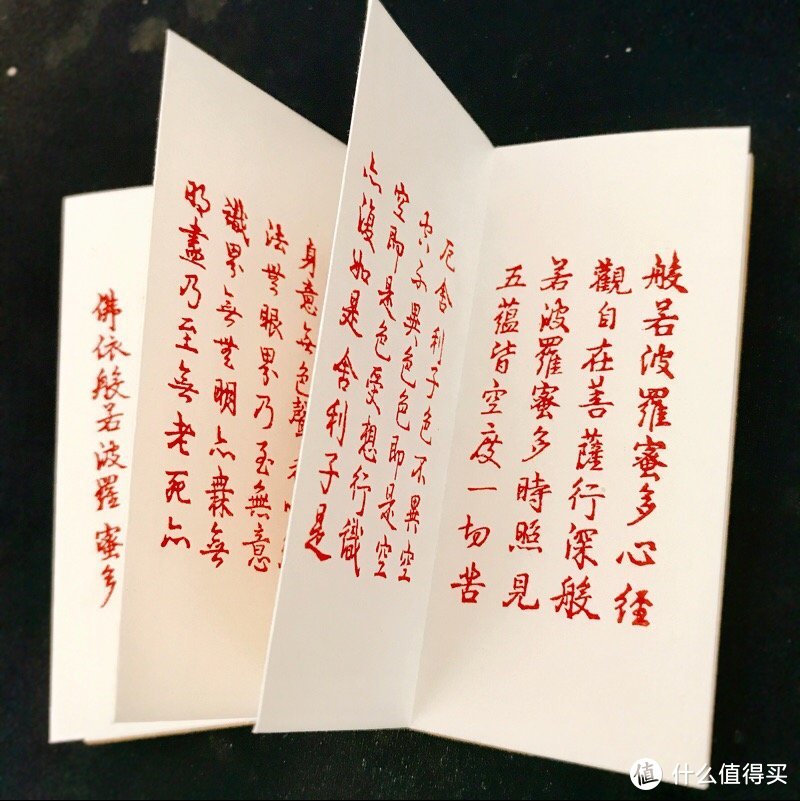 般若波羅蜜多心經
觀自在菩薩行深般
若波羅蜜多時照見
五蘊皆空度一切苦
厄舍利子色不異空
空不異色色即是空
空即是色受想行識
亦復如是舍利子是
身意無色聲
法無眼界乃至無意
識界無無明亦無無
明盡乃至無老死亦
佛依般若波羅蜜多
值 什么值得买